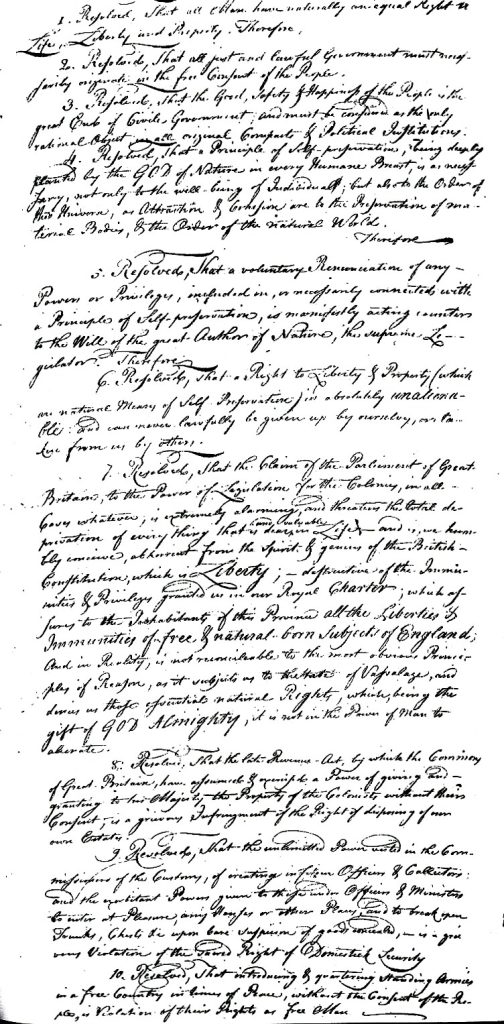 1. Resolved, That all Men have naturally an equal Right to
Life, Liberty and Property. Therefore,
2. Resolved, That all just and lawful Government must neces-
sarily originate in the free Consent of the People.
3. Resolved, That the Good, Safety & Happiness of the People is the
great End of Civil Government, and must be considered as the only
rational Object in all original Compacts & Political Institutions.
4. Resolved, That a Principle of Self-preservation, being deeply
planted by the GOD of Nature in every Humane Breast, is as neces-
sary, not only to the well-being of Individuals; but also to the Order of
the Universe, as Attraction & Cohesion are to the Preservation of ma-
terial Bodies, & the Order of the natural World.
Therefore
5. Resolved, That a voluntary Renunciation of any
Powers or Privileges, included in, or necessarily connected with
a Principle of Self-preservation, is manifestly acting counter
to the Will of the great Author of Nature, the supreme Le-
gislator. Therefore
6. Resolved, That a Right to Liberty & Property (which
are natural Means of Self Preservation) is absolutely unaliena-
ble: and can never lawfully be given up by ourselves, or ta-
ken from us by others.
7. Resolved, That the Claim of the Parliament of Great
Britain, to the Power of Legislation for the Colonies, in all
Cases whatever, is extremely alarming, and threatens the total de-
privation of every thing that is dear and valuable in Life and is, we hum-
bly conceive, abhorrent from the Spirit & genius of the British
Constitution, which is Liberty; destructive of the Immu-
nities & Privileges granted us in our Royal Charter, which as-
sures to the Inhabitants of this Province all the Liberties &
Immunities of free & natural born Subjects of England;
And in Reality, is not reconcileable to the most obvious Princi-
ples of Reason, as it subjects us to the State of Vassalage, and
denies us those essential natural Rights, which, being the
gift of GOD ALMIGHTY, it is not in the Power of Man to
alienate.
8. Resolved, That the late Revenue-Act, by which the Commons
of Great-Britain, have assumed & exercised a Power of giving and
granting to his Majesty the Property of the Colonists without their
Consent, is a grievous Infringement of the Right of disposing of our
own Estates.
9. Resolved, That the unlimitted Power vested in the Com-
missioners of the Customs, of creating inferior Officers & Collectors:
and the exorbitant Powers given to those under Officers & Ministers
to enter at Pleasure, any Houses or other Places, and to break open
Trunks, Chests &c upon bare Suspicion of goods concealed, is a grie
vous Violation of the Sacred Right of Domestick Security
10. Resolved, That introducing & quartering Standing Armies
in a free Country in times of Peace, without the Consent of the Peo-
ple, is Violation of their Rights as free Men